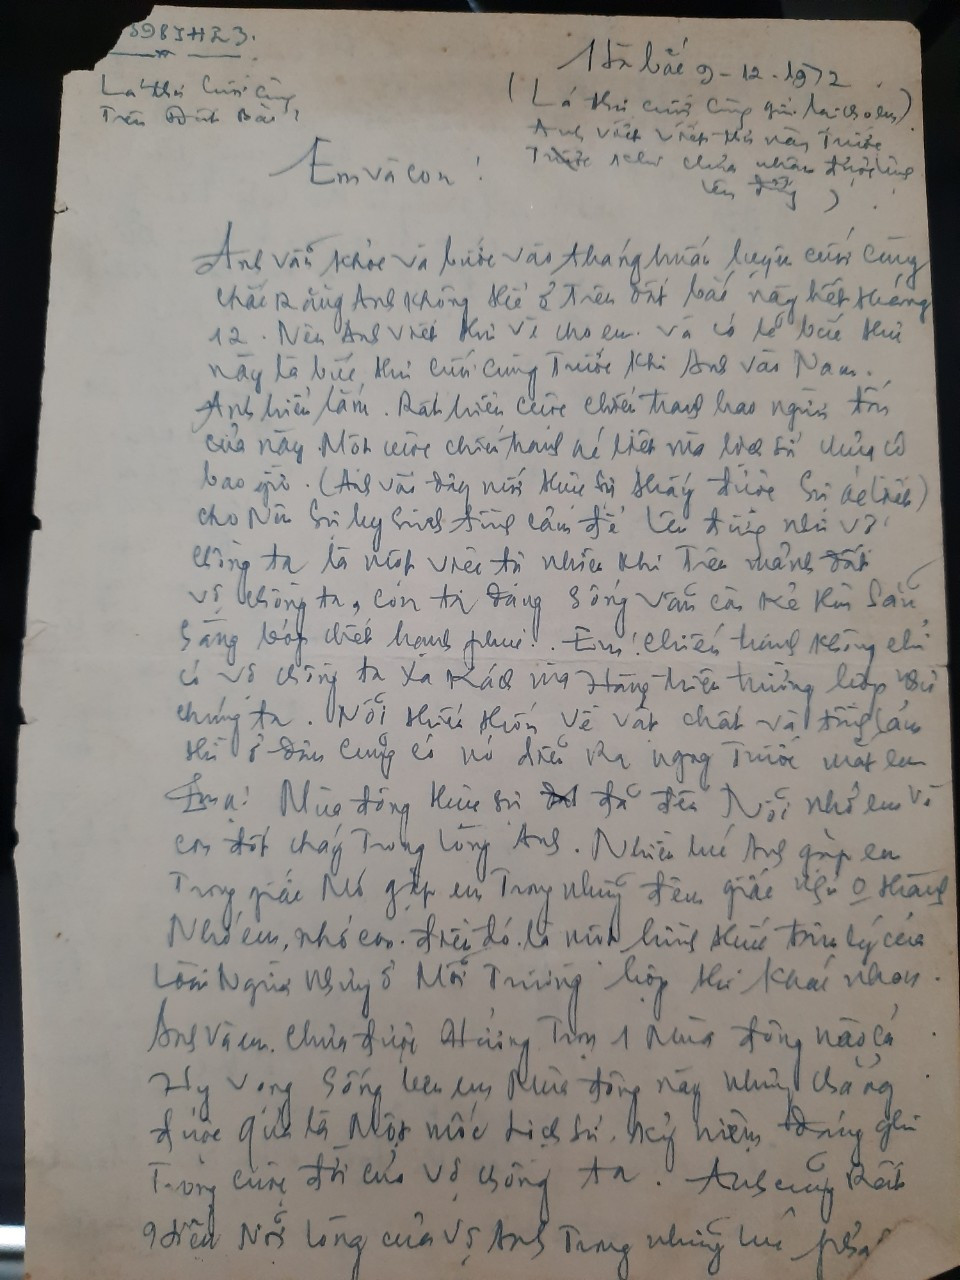 598JH23.
Lá thư Cuối Cùng
Trên Đất Bắc!
Hà bắc 9-12-1972
(Lá thư cuối Cùng gửi lại cho em)
Anh viết viết thư này Trước
Trước khi chưa nhận được
lên đường )
Em và con !
Anh vẫn khỏe và bước vào tháng huấn luyện cuối cùng
chắc Rằng Anh không thể ở Trên đất bắc này hết tháng
12. Nên Anh viết thư về cho em. và có lẽ bức thư
này là bức thư cuối cùng Trước khi Anh vào Nam.
Anh hiểu lắm. Rất hiểu cuộc chiến tranh bao người
của này. Một cuộc chiến tranh ác liệt mà lịch sử chưa có
bao giờ. (Anh vào đây mới thực sự thấy được Sự ác liệt)
cho Nên Sự hy Sinh tình cảm để lên đường như vợ
chồng ta là một việc tự nhiên khi Trên mảnh đất
vợ chồng ta, con ta đang Sống vẫn còn kẻ thù Sẵn
Sàng bóp chết hạnh phúc. Em! Chiến tranh không chỉ
có vợ chồng ta Xa Kách mà Hàng triệu trường hợp như
chúng ta. Nỗi thiếu thốn về vật chất và tình cảm
thì ở đâu cũng có nó diễn Ra ngay Trước mắt em
Em ạ! Mùa đông thực sự đã đến Nỗi nhớ em và
con đốt cháy Trong lòng Anh. Nhiều lúc Anh gặp em
Trong giấc Mơ gặp em Trong những đêm giấc ngủ o thành
Nhớ em, nhớ con. điều đó là một hình thức tâm lý của
Loài Người Nhưng ở Mỗi Trường hợp thì khác nhau.
Anh và em. Chưa được Hưởng Trọn 1 Mùa đông nào cả
Hy vọng Sống bên em Mùa đông này nhưng chẳng
được quả là Một mốc Lịch Sử. kỷ niệm đáng ghi
Trong cuộc đời của Vợ chồng ta. Anh cũng Rất
Hiểu Nỗi lòng của Vợ Anh Trong những lúc